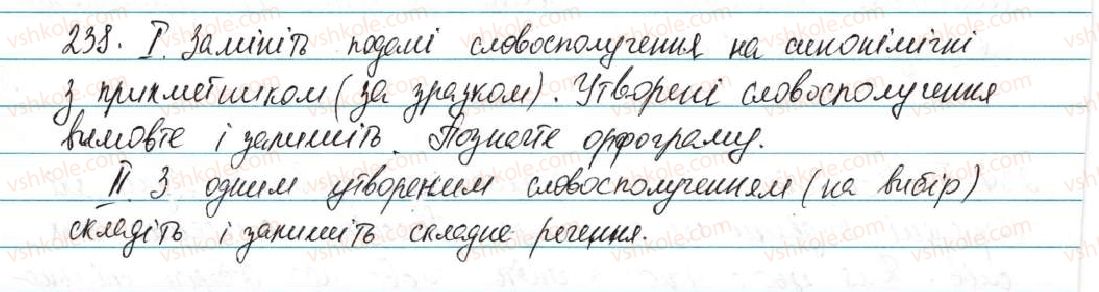 238. I. Замініть подані словосполучення на синонімічні
з прикметником (за зразком). Утворені словосполучення
вимовте і запишіть. Позначте орфограму.
II. З одним утвореним словосполученням (на вибір)
складіть і запишіть складне речення.